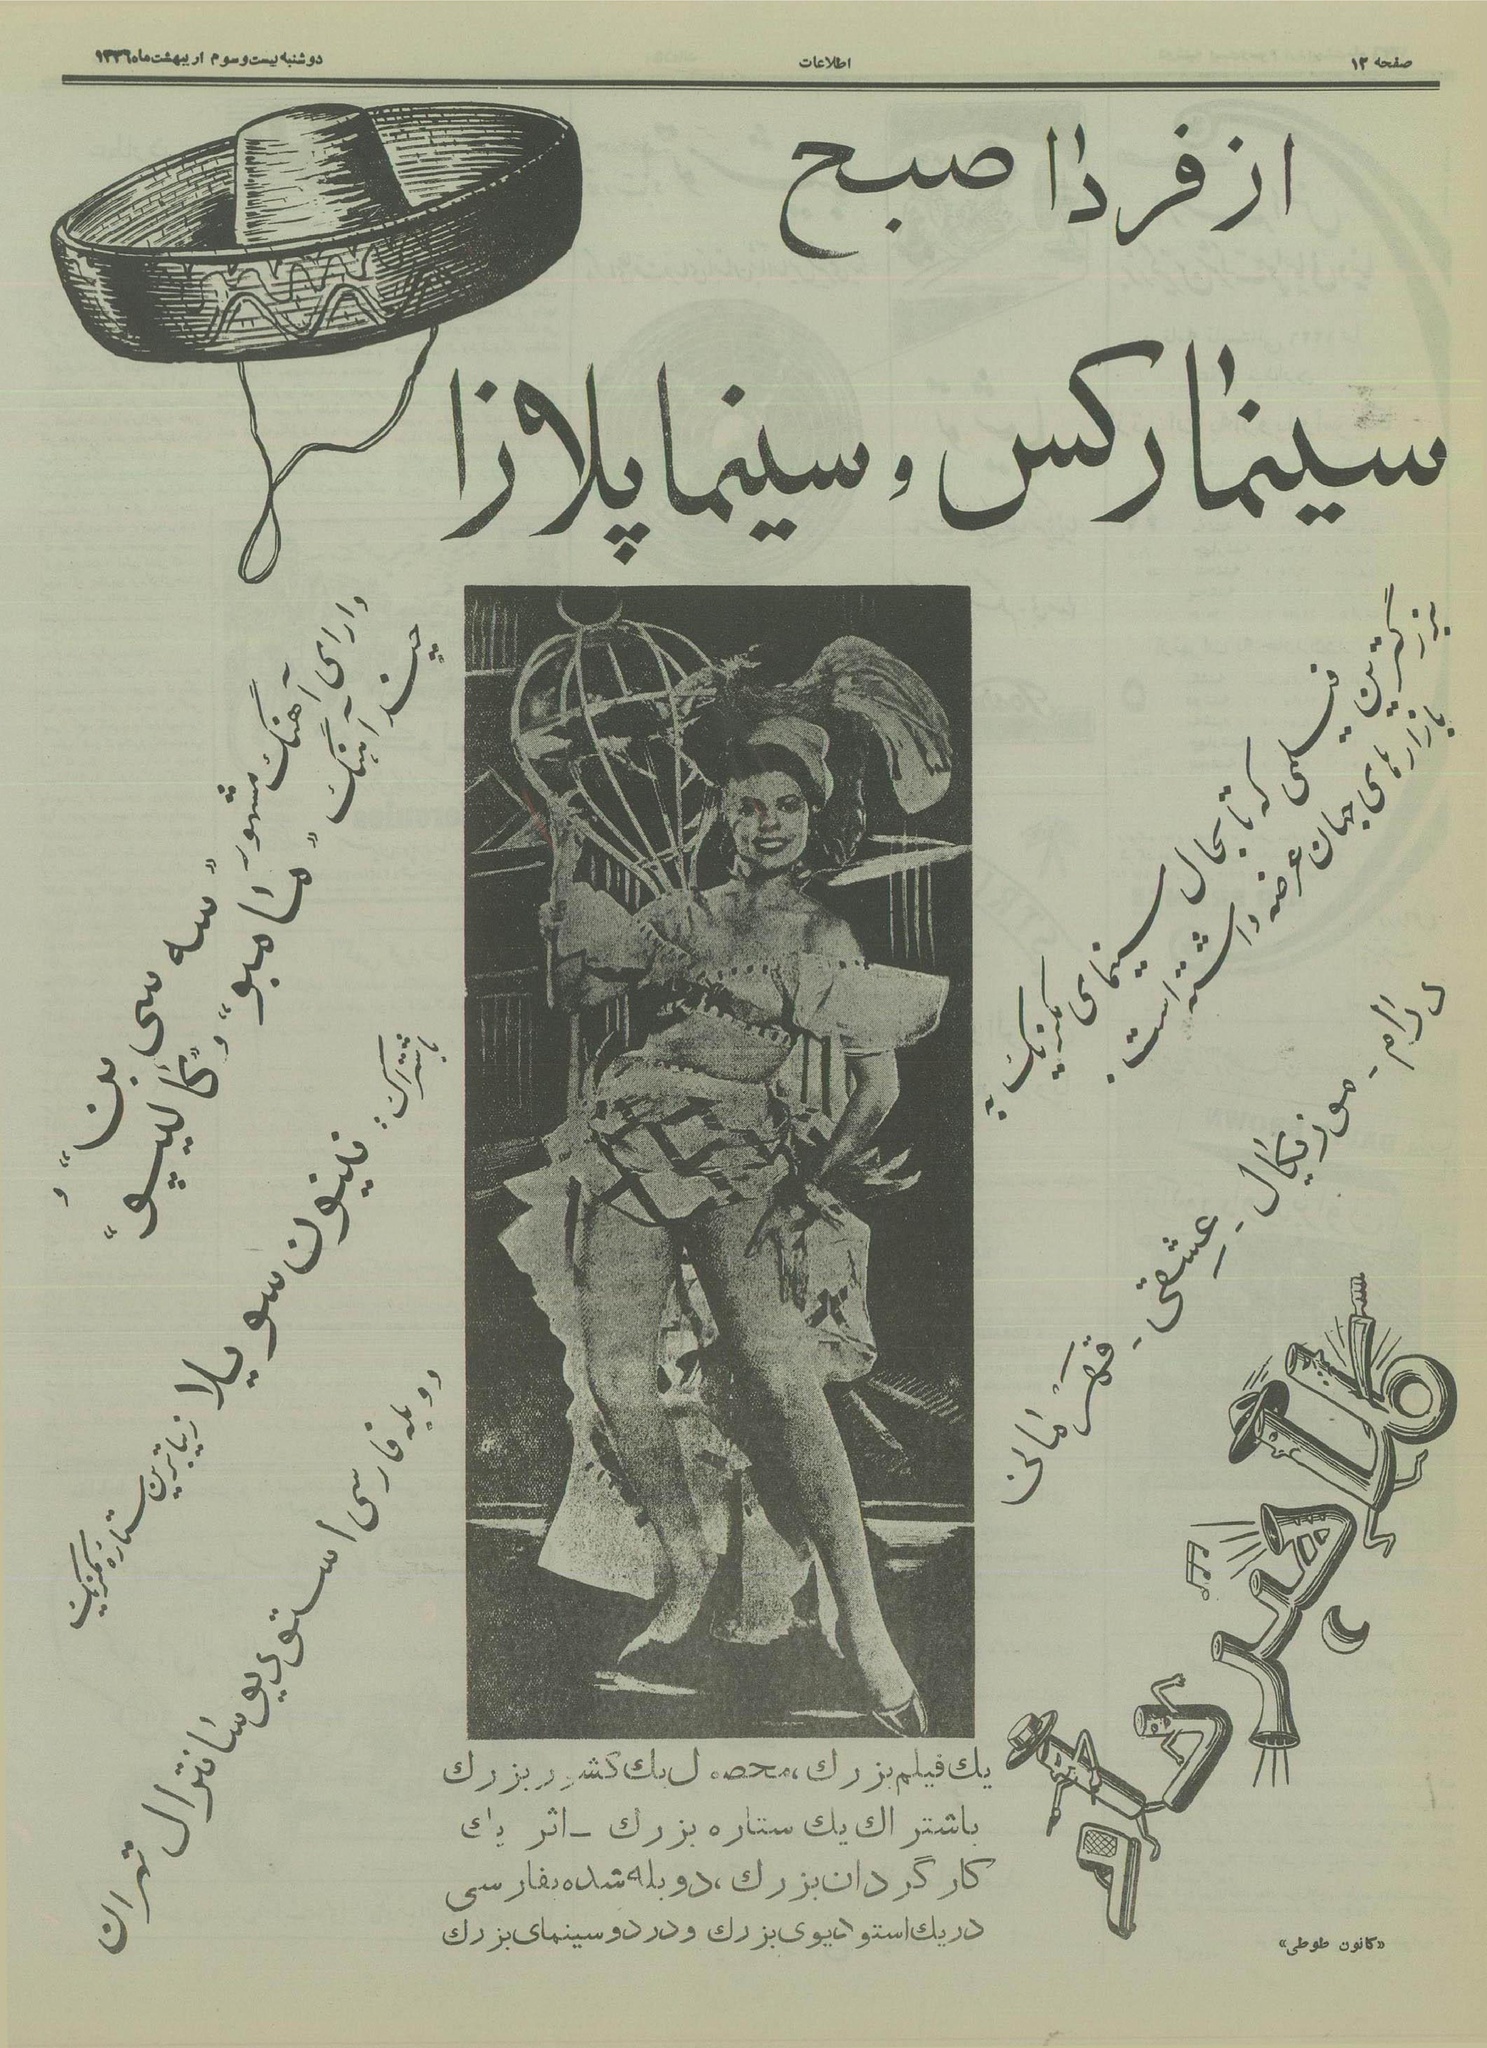 صفحه ۱۲
اطلاعات
دوشنبه بیست و سوم اریبهشت ماه ۱۳۳۶
از فردا صبح
سینما رکس و سینما پلازا
بزرگترین فیلمی که تا بحال سینمای مکزیک به
بازارهای جهان عرضه داشته است.
درام - موزیکال - عشقی - قهرمانی
دارای آهنگ مشهور «سه سی بن» و
چند آهنگ «مامبو» و «کالیپو»
باشتراک:
نینون سویلا زیباترین ستاره مکزیک
دوبله فارسی استودیو سانترال تهران
یك فیلم بزرك، محصول یك کشور بزرك
باشتراك یك ستاره بزرك - اثر یك
کارگردان بزرك، دوبله شده بفارسی
در یك استودیوی بزرك و در دو سینمای بزرك
«کانون طوطی»